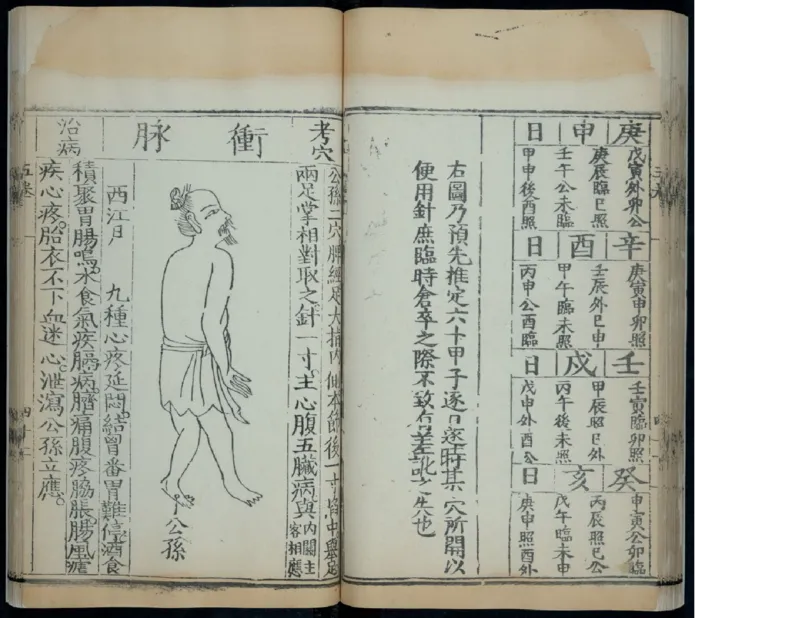 庚申日
戊寅外卯公
庚辰臨巳照
壬午公未臨
甲申後酉照
辛酉日
庚寅申卯照
壬辰外巳申
甲午臨未照
丙申公酉臨
壬戌日
壬寅臨卯照
甲辰照巳外
丙午後未照
戊申外酉公
癸亥日
申寅公卯臨
丙辰照巳公
戊午臨未申
庚申照酉外
右圖乃預先推定六十甲子逐日逐時某穴所開以
便用針庶臨時倉卒之際不致有差訛之失也
考穴
公孫二穴脾經足大指內側本節後一寸陷中舉足
兩足掌相對取之針一寸。主心腹五臟病與內關主客相應
衝脈
公孫
治病
西江月 九種心疼延悶。結胷番胃難停。酒食
積聚胃腸鳴。水食氣疾膈病。臍痛腹疼脇脹。腸風瘧
疾心疼。胎衣不下血迷心。泄瀉公孫立應。
五卷
四十